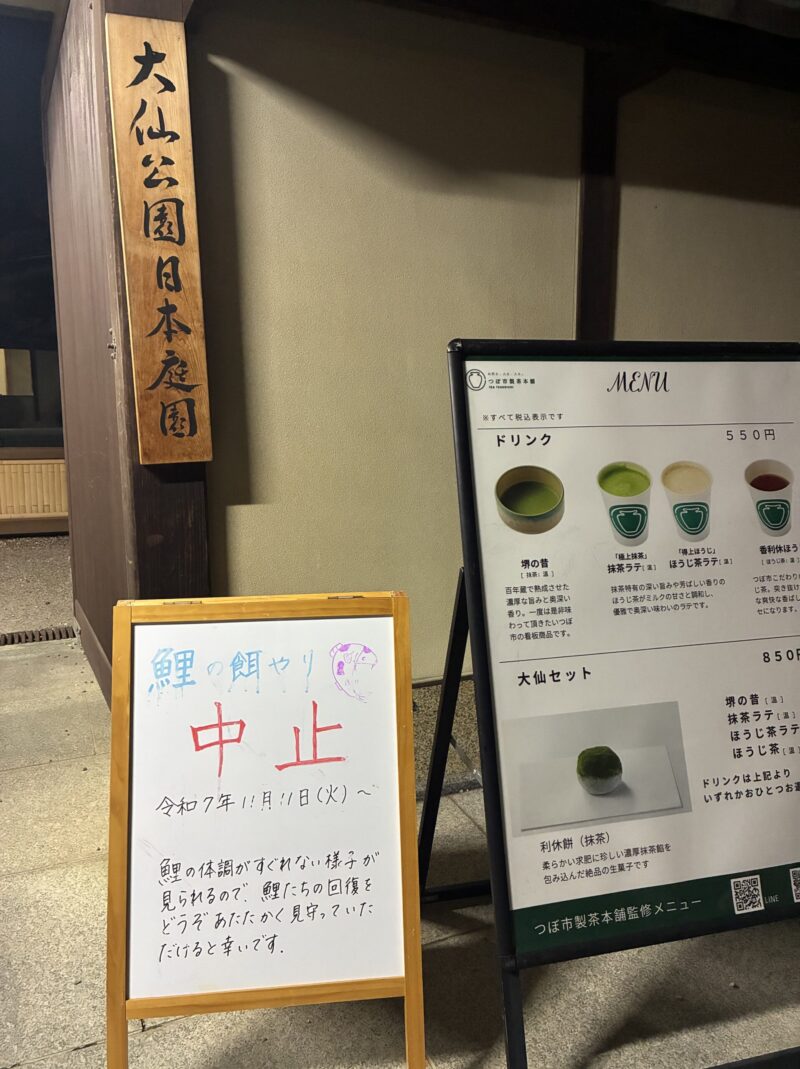 大仙公園日本庭園
鯉の餌やり
中止
令和7年11月11日(火)~
鯉の体調がすぐれない様子が
見られるので、鯉たちの回復を
どうぞあたたかく見守っていた
だけると幸いです.
つぼ市製茶本舗
MENU
※すべて税込表示です
ドリンク
550円
堺の昔
[抹茶:温]
百年蔵で熟成させた
濃厚な旨みと奥深い
香り。一度は是非味
わって頂きたいつぼ
市の看板商品です。
「極上抹茶」
抹茶ラテ[温]
「得上ほうじ」
ほうじ茶ラテ[温]
抹茶特有の深い旨みや芳ばしい香りの
ほうじ茶がミルクの甘さと調和し、
優雅で奥深い味わいのラテです。
香利休ほう
[ほうじ茶:温]
つぼ市こだわり
じ茶。突き抜け
な爽快な香ばし
セになります。
大仙セット
850円
堺の昔[温]
抹茶ラテ[温]
ほうじ茶ラテ
ほうじ茶[温]
ドリンクは上記より
いずれかおひとつお選
利休餅(抹茶)
柔らかい求肥に珍しい濃厚抹茶餡を
包み込んだ絶品の生菓子です
つぼ市製茶本舗監修メニュー
LINE